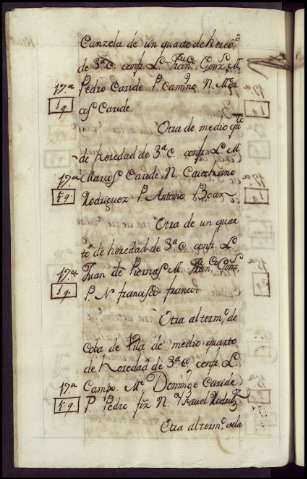 Canzela de un quarto de heredᵈ
de 3ª C. conf. L. Franᶜᵒ Gonzˢ M.
17ª Pedro Caride P. Camino N. Mar
1q cos Caride
Otra de medio quᵗᵒ
de heredad de 3ª C. conf. L. M.
17ª Caride N. Caietano
½q Rodriguez P. Antonio Bouz
Otra de un quar
to de heredad de 3ª C. conf. L.
17ª Juan de M. Franᶜᵒ Gonzˢ
1q P. N. francisco franco
Otra al termº de
Cota de Vila de medio quarto
de heredad de 3ª C. conf. L.
17ª Campo M. Domingo Caride
½q P. Pedro frz N. Manuel Rodrigˢ
Otra al termº de la